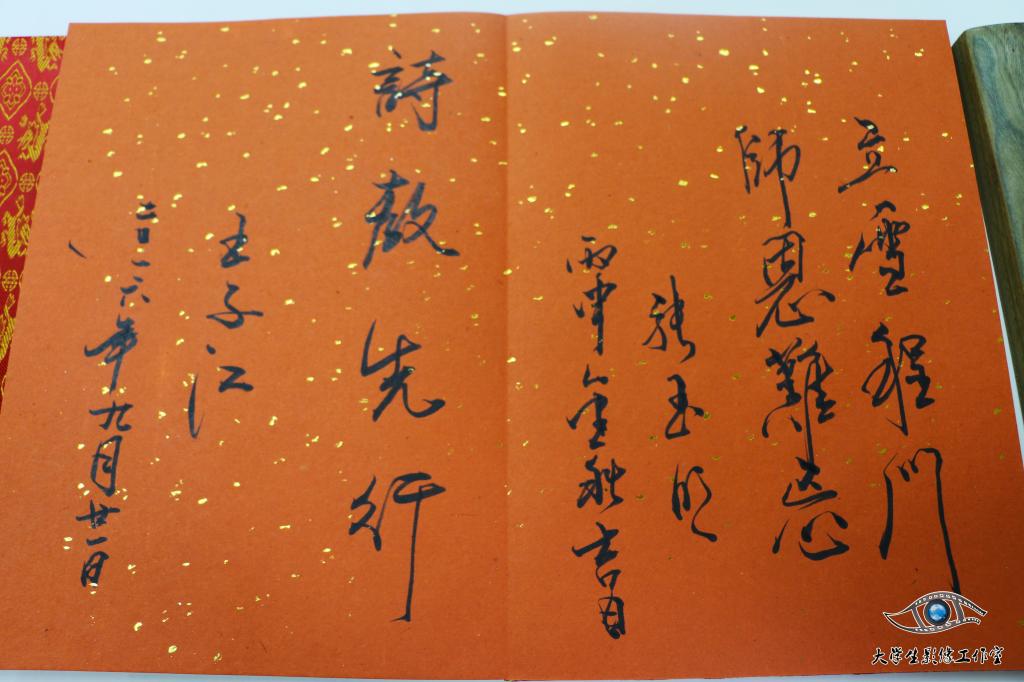 立雪程门
師恩難忘
玉明
丙申金秋
詩教先行
王子江
二〇一六年九月廿一日
大学生影像工作室